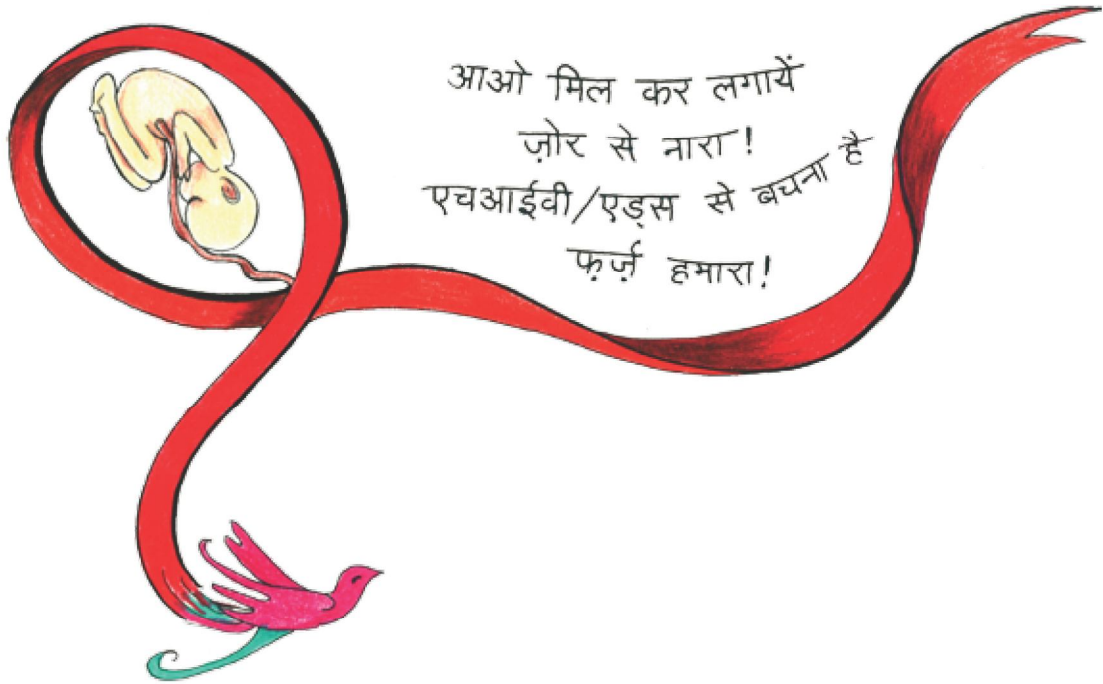 आओ मिल कर लगायें
ज़ोर से नारा!
एचआईवी/एड्स से बचना है
फ़र्ज़ हमारा!